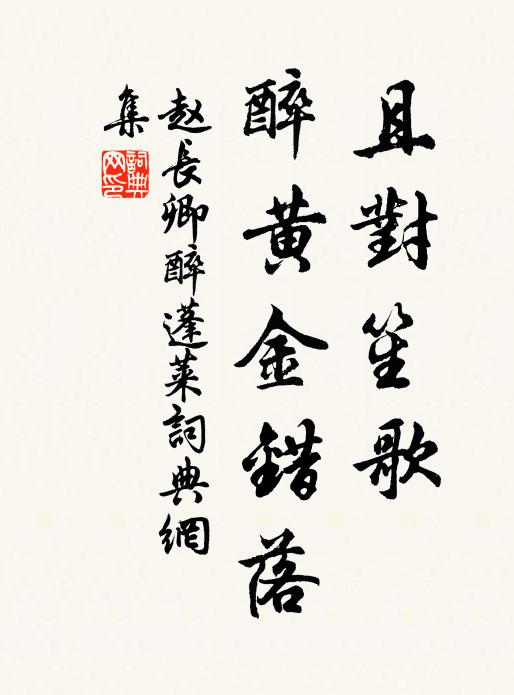 且對笙歌
醉黃金錯落
赵長卿醉蓬萊詞典網
集
詞典
网印